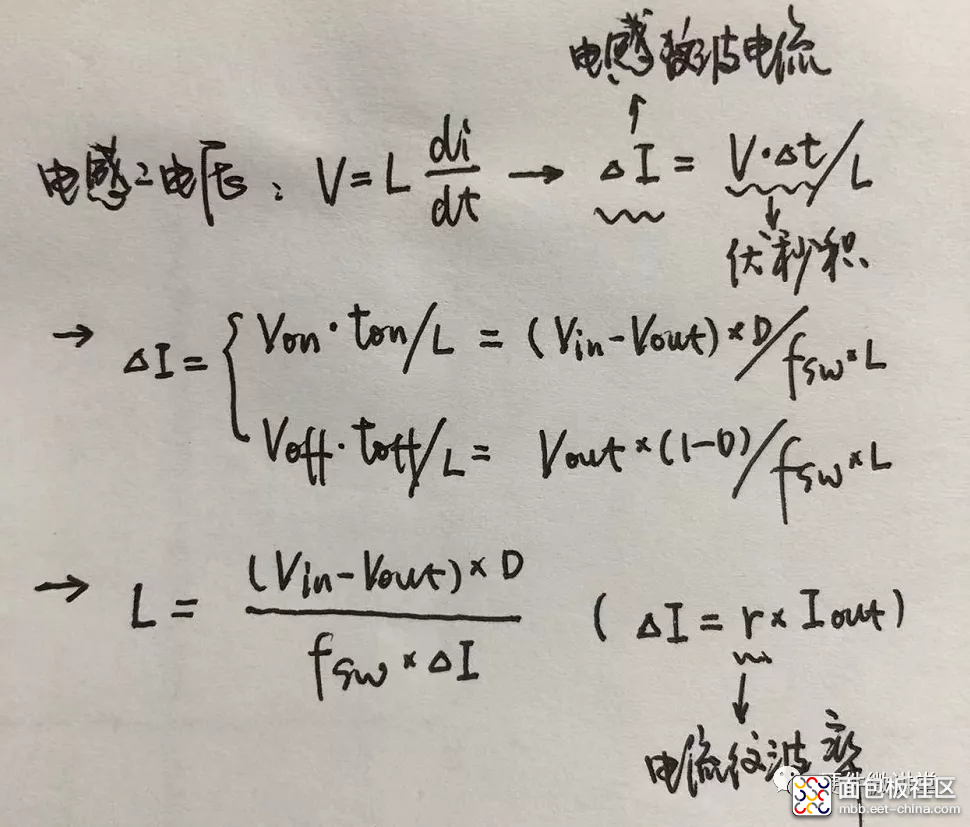 电感纹波电流
↑
电感电压: V = L di/dt → ΔI = V·Δt/L
↓
伏秒积
→ ΔI = { Von·ton/L = (Vin-Vout)×D/fsw×L
Voff·toff/L = Vout×(1-D)/fsw×L
→ L = (Vin-Vout)×D / fsw×ΔI (ΔI = r×Iout)
↓
电流纹波率
面包板社区
mbb.eet-china.com